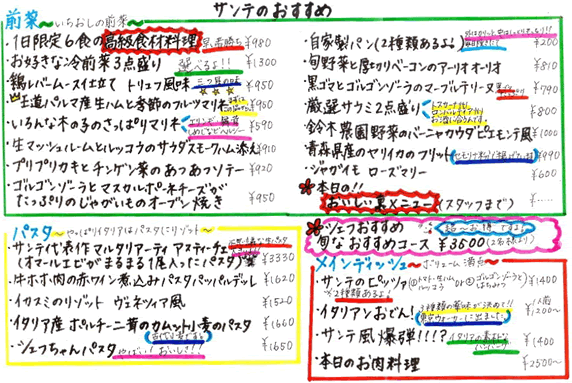 サンテのおすすめ
前菜 〜いちおしの前菜〜
・1日限定6食の高級食材料理 早い者勝ち ¥980
・お好きな冷前菜3点盛り 選べるよ!! ¥1300
・鶏レバームース仕立て トリュフ風味 ¥950
・王道パルマ産生ハムと季節のフルッツマリネ ¥960
・いろんな木の子のさっぱりマリネ ¥590
・生マッシュルームとルッコラのサラダスモークハム添え ¥910
・プリプリカキとチンゲン菜のあつあつソテー ¥920
・ゴルゴンゾーラとマスカルポーネチーズが
たっぷりのじゃがいものオーブン焼き ¥950
・自家製パン(2種類あるよ) ¥200
・旬野菜と厚切りベーコンのアーリオオーリオ ¥810
・黒ゴマとゴルゴンゾーラのマーブルテリーヌ ¥790
・厳選サラミ2点盛り ¥800
・鈴木農園野菜のバーニャカウダピエモンテ風 ¥1000
・青森県産のヤリイカのフリット ¥990
・ジャガイモ ローズマリー ¥600
・本日の!!
おいしい裏メニュー(スタッフまで) ¥……
シェフおすすめ 超〜お得ですよ
旬なおすすめコース ¥3500(2名様より)
パスタ 〜やっぱりイタリアはパスタにリゾット〜
・サンテ代表作 マルタリアーティ アスティーチェ
(オマールエビがまるまる1尾入ったパスタ) ¥3330
・牛ホホ肉の赤ワイン煮込みパスタパッパルデッレ ¥1620
・イカスミのリゾット ヴェネツィア風 ¥1520
・イタリア産 ポルチーニ茸のタムット小麦のパスタ ¥1660
・シェフちゃんパスタ やばい! おいしさ!! ¥1650
メインディッシュ 〜ボリューム満点〜
・サンテのピッツァ ¥1400
※2種類あるよ!
・イタリアンおでん! 3種類の薬味が決め手!! 1人前 ¥1200〜
・サンテ風爆弾!!! ¥1400
・本日のお肉料理 ¥2500〜